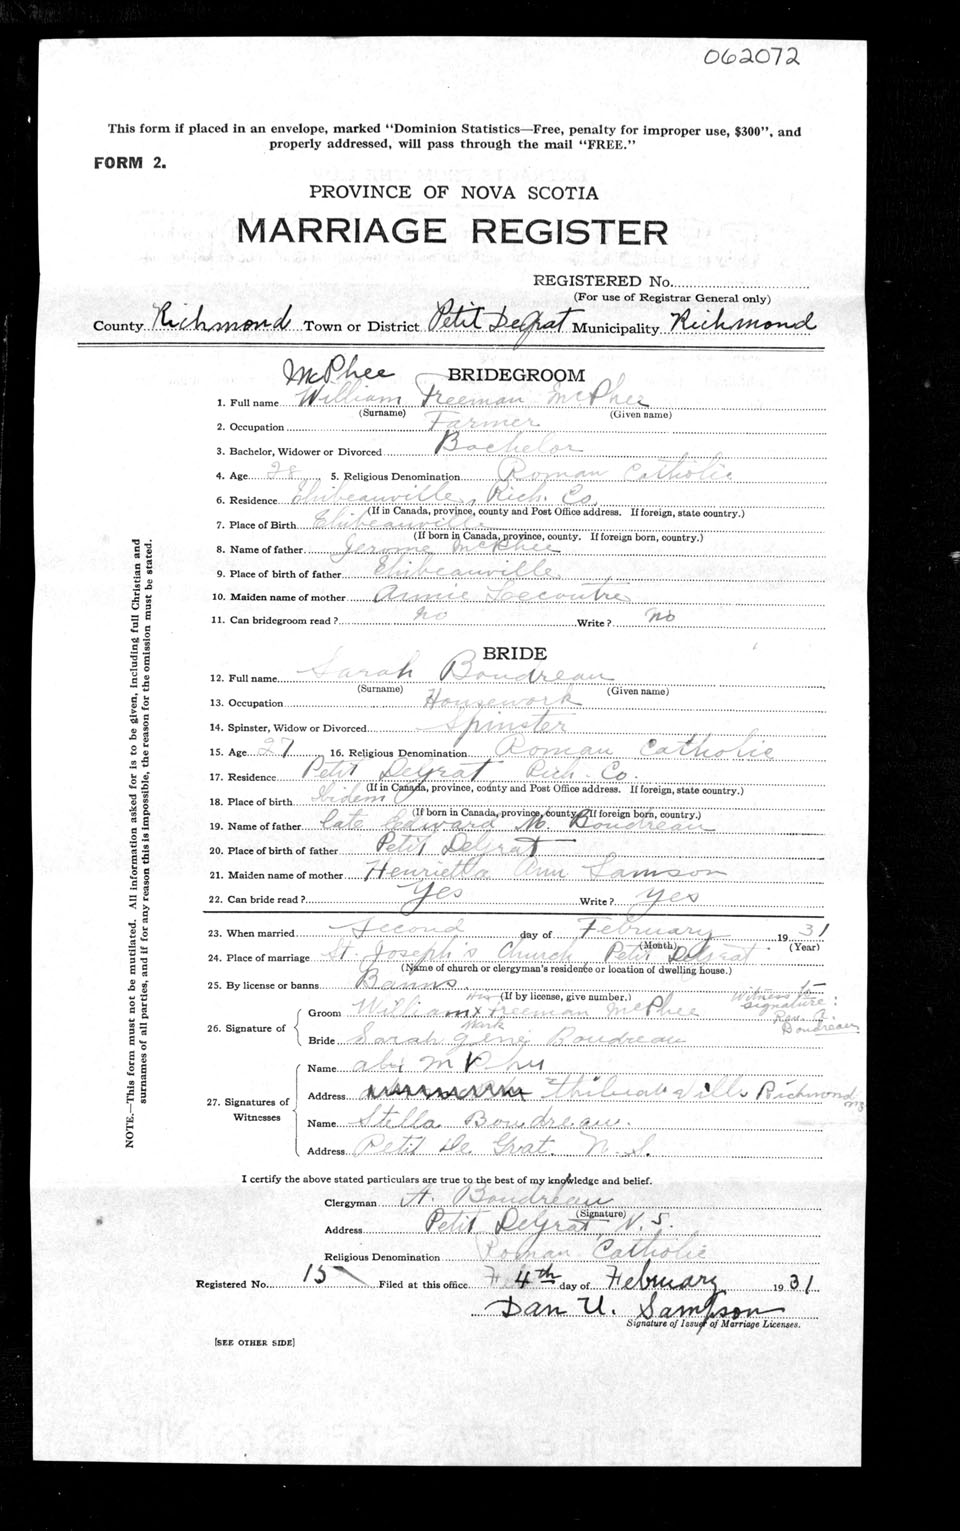 062072
This form if placed in an envelope, marked "Dominion Statistics—Free, penalty for improper use, $300", and
properly addressed, will pass through the mail "FREE."
FORM 2.
PROVINCE OF NOVA SCOTIA
MARRIAGE REGISTER
REGISTERED No.
(For use of Registrar General only)
County Richmond Town or District Petit DeGrat Municipality Richmond
McPhee BRIDEGROOM
1. Full name William Freeman McPhee
(Surname) (Given name)
2. Occupation Farmer
3. Bachelor, Widower or Divorced Bachelor
4. Age 28 5. Religious Denomination Roman Catholic
6. Residence Thibeauville, Rich. Co.
(If in Canada, province, county and Post Office address. If foreign, state country.)
7. Place of Birth Thibeauville
(If born in Canada, province, county. If foreign born, country.)
8. Name of father Jerome McPhee
9. Place of birth of father Thibeauville
10. Maiden name of mother Annie Lecoutre
11. Can bridegroom read? no Write? no
BRIDE
12. Full name Sarah Boudreau
(Surname) (Given name)
13. Occupation Housework
14. Spinster, Widow or Divorced Spinster
15. Age 27 16. Religious Denomination Roman Catholic
17. Residence Petit DeGrat, Rich. Co.
(If in Canada, province, county and Post Office address. If foreign, state country.)
18. Place of birth Ibidem
(If born in Canada, province, county. If foreign born, country.)
19. Name of father late Edward M. Boudreau
20. Place of birth of father Petit DeGrat
21. Maiden name of mother Henrietta Ann Samson
22. Can bride read? Yes Write? Yes
23. When married Second day of February 1931
(Month) (Year)
24. Place of marriage St. Joseph's Church Petit DeGrat
(Name of church or clergyman's residence or location of dwelling house.)
25. By license or banns Banns
(If by license, give number.)
Witness to signature: Rev. A. Boudreau
26. Signature of
Groom William his x mark Freeman McPhee
Bride Sarah Boudreau
27. Signatures of Witnesses
Name
Address Richmond
Name Stella Boudreau.
Address Petit De Grat. N. S.
I certify the above stated particulars are true to the best of my knowledge and belief.
Clergyman A. Boudreau
(Signature)
Address Petit DeGrat, N. S.
Religious Denomination Roman Catholic
Registered No. 15 Filed at this office 4th day of February 1931
Dan U. Sampson
Signature of Issuer of Marriage Licenses.
[SEE OTHER SIDE]
NOTE.—This form must not be mutilated. All information asked for is to be given, including full Christian and
surnames of all parties, and if for any reason this is impossible, the reason for the omission must be stated.